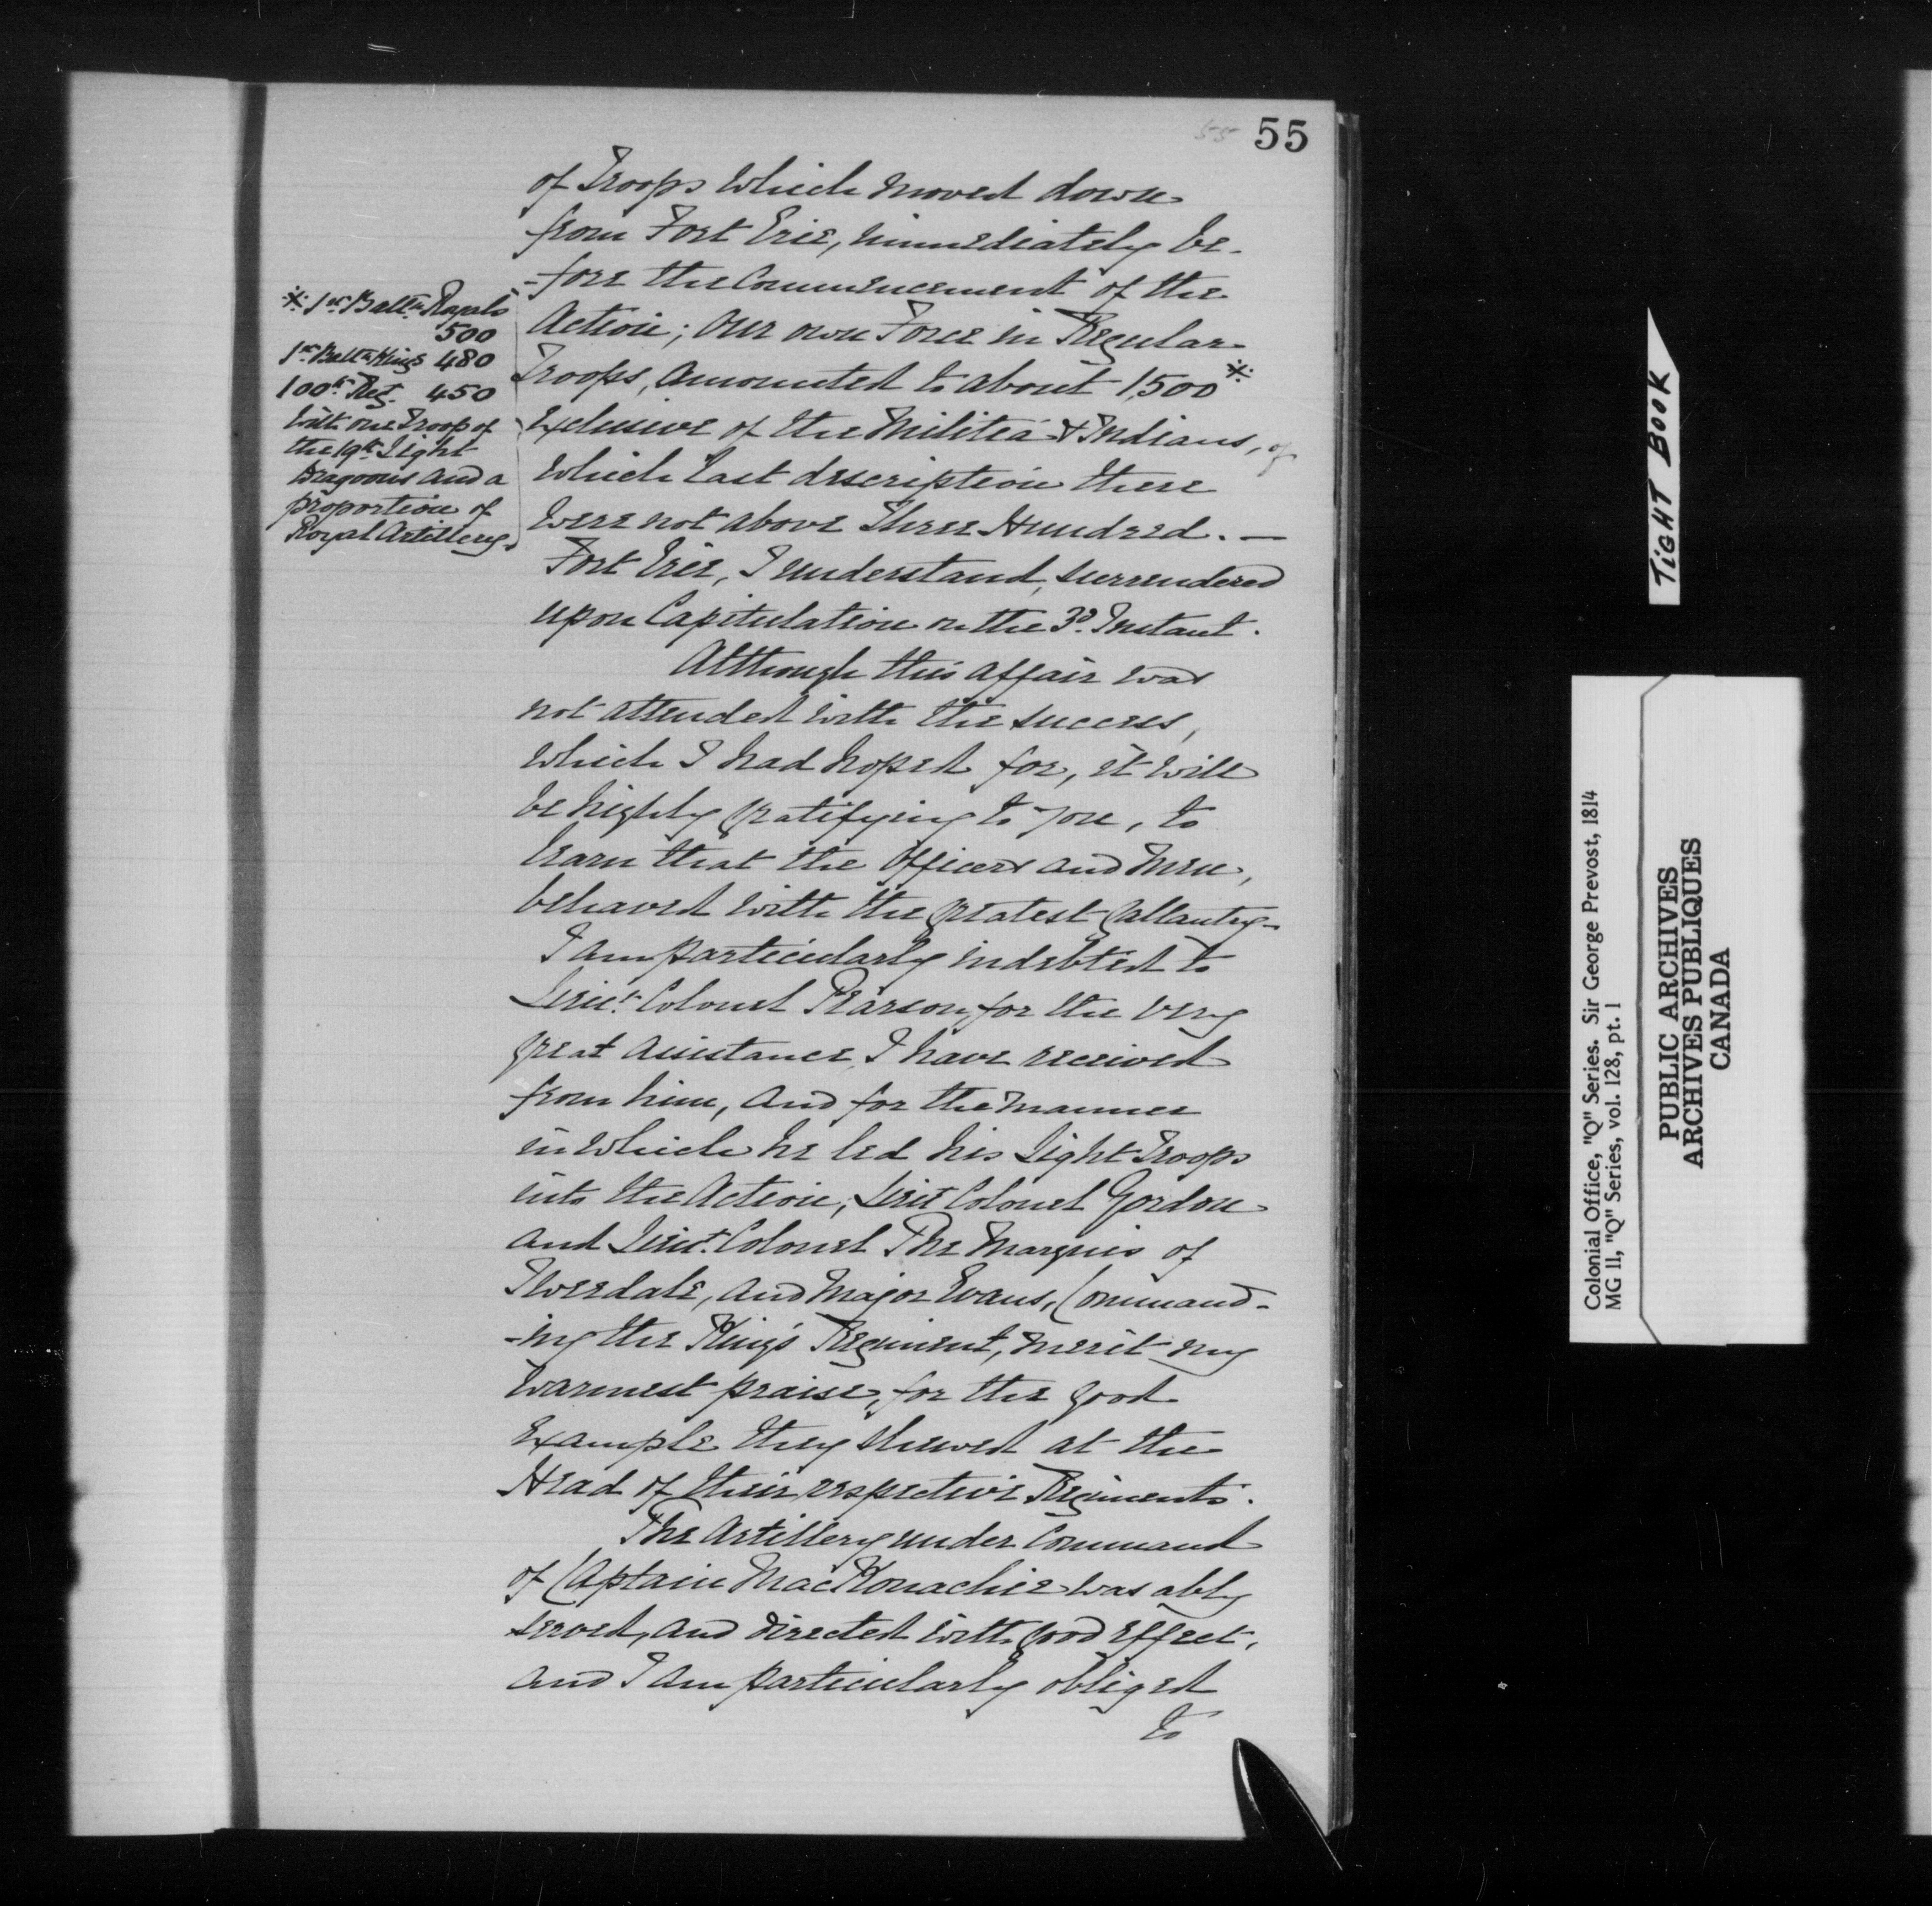 55 55
of Troops which moved down
from Fort Erie, immediately be-
-fore the Commencement of the
Action; Our own Force in Regular
Troops, amounted to about 1,500 ※
Exclusive of the Militia & Indians, of
which last description there
were not above Three Hundred. —
Fort Erie, I understand, surrendered
upon Capitulation on the 3d. Instant.
Although this affair was
not attended with the success,
which I had hoped for, it will
be highly gratifying to you, to
learn that the Officers and Men,
behaved with the greatest Gallantry.
I am particularly indebted to
Lieut. Colonel Pearson, for the very
great assistance, I have received
from him, and for the manner
in which he led his Light Troops
into the Action; Lieut Colonel Gordon
and Lieut. Colonel The Marquis of
Tweedale, and Major Evans, Command-
-ing the King's Regiment, merit my
warmest praise, for the good
Example they shewed at the
Head of their respective Regiments.
The Artillery under Command
of Captain MacKonachie was ably
served, and directed with good effect,
and I am particularly obliged
to
※ 1st Battn Royals
500
1st Battn Kings 480
100th Reg. 450
with one Troop of
the 19th Light
Dragoons and a
proportion of
Royal Artillery.
TIGHT BOOK
Colonial Office, "Q" Series. Sir George Prevost, 1814
MG 11, "Q" Series, vol. 128, pt. 1
PUBLIC ARCHIVES
ARCHIVES PUBLIQUES
CANADA